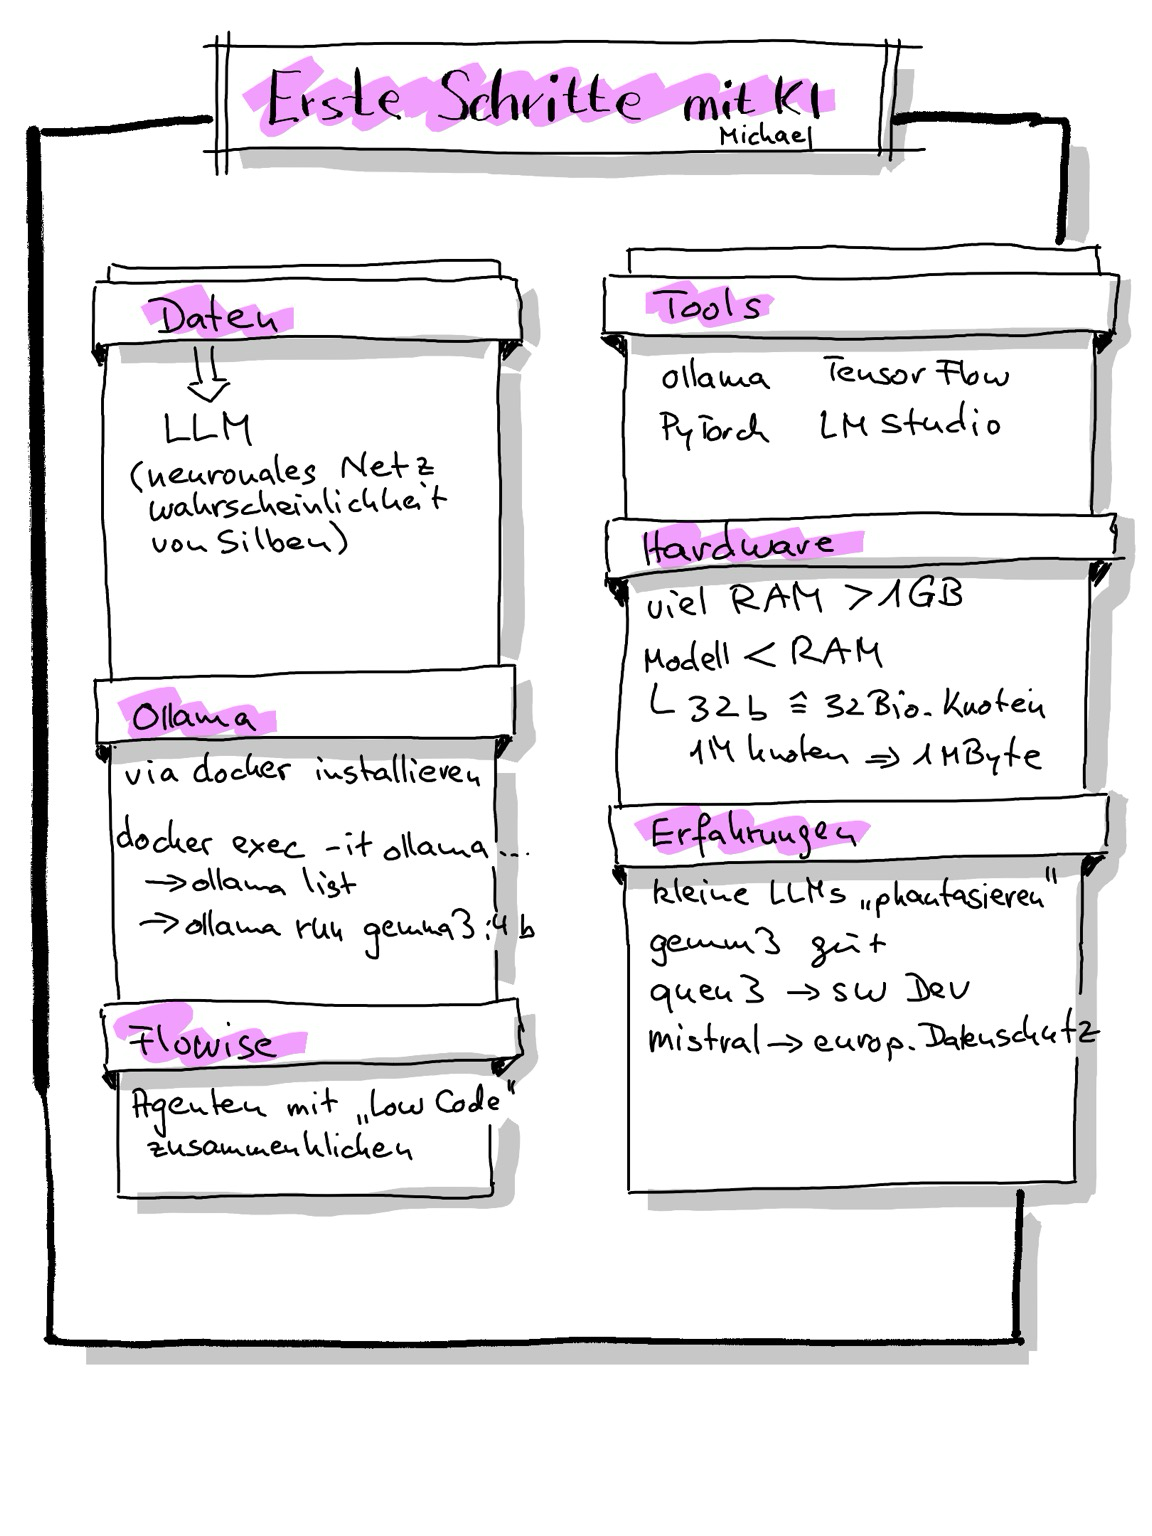 Erste Schritte mit KI
Michael
Daten
LLM
(neuronales Netz
wahrscheinlichkeit
von Silben)
Ollama
via docker installieren
docker exec -it ollama ...
→ ollama list
→ ollama run gemma3:4b
Flowise
Agenten mit „Low Code"
zusammenklicken
Tools
ollama TensorFlow
PyTorch LM Studio
Hardware
viel RAM > 1GB
Modell < RAM
32b ≙ 32Bio. Knoten
1M Knoten ⇒ 1MByte
Erfahrungen
kleine LLMs „phantasieren"
gemm3 gut
quen3 → SW Dev
mistral → europ. Datenschutz